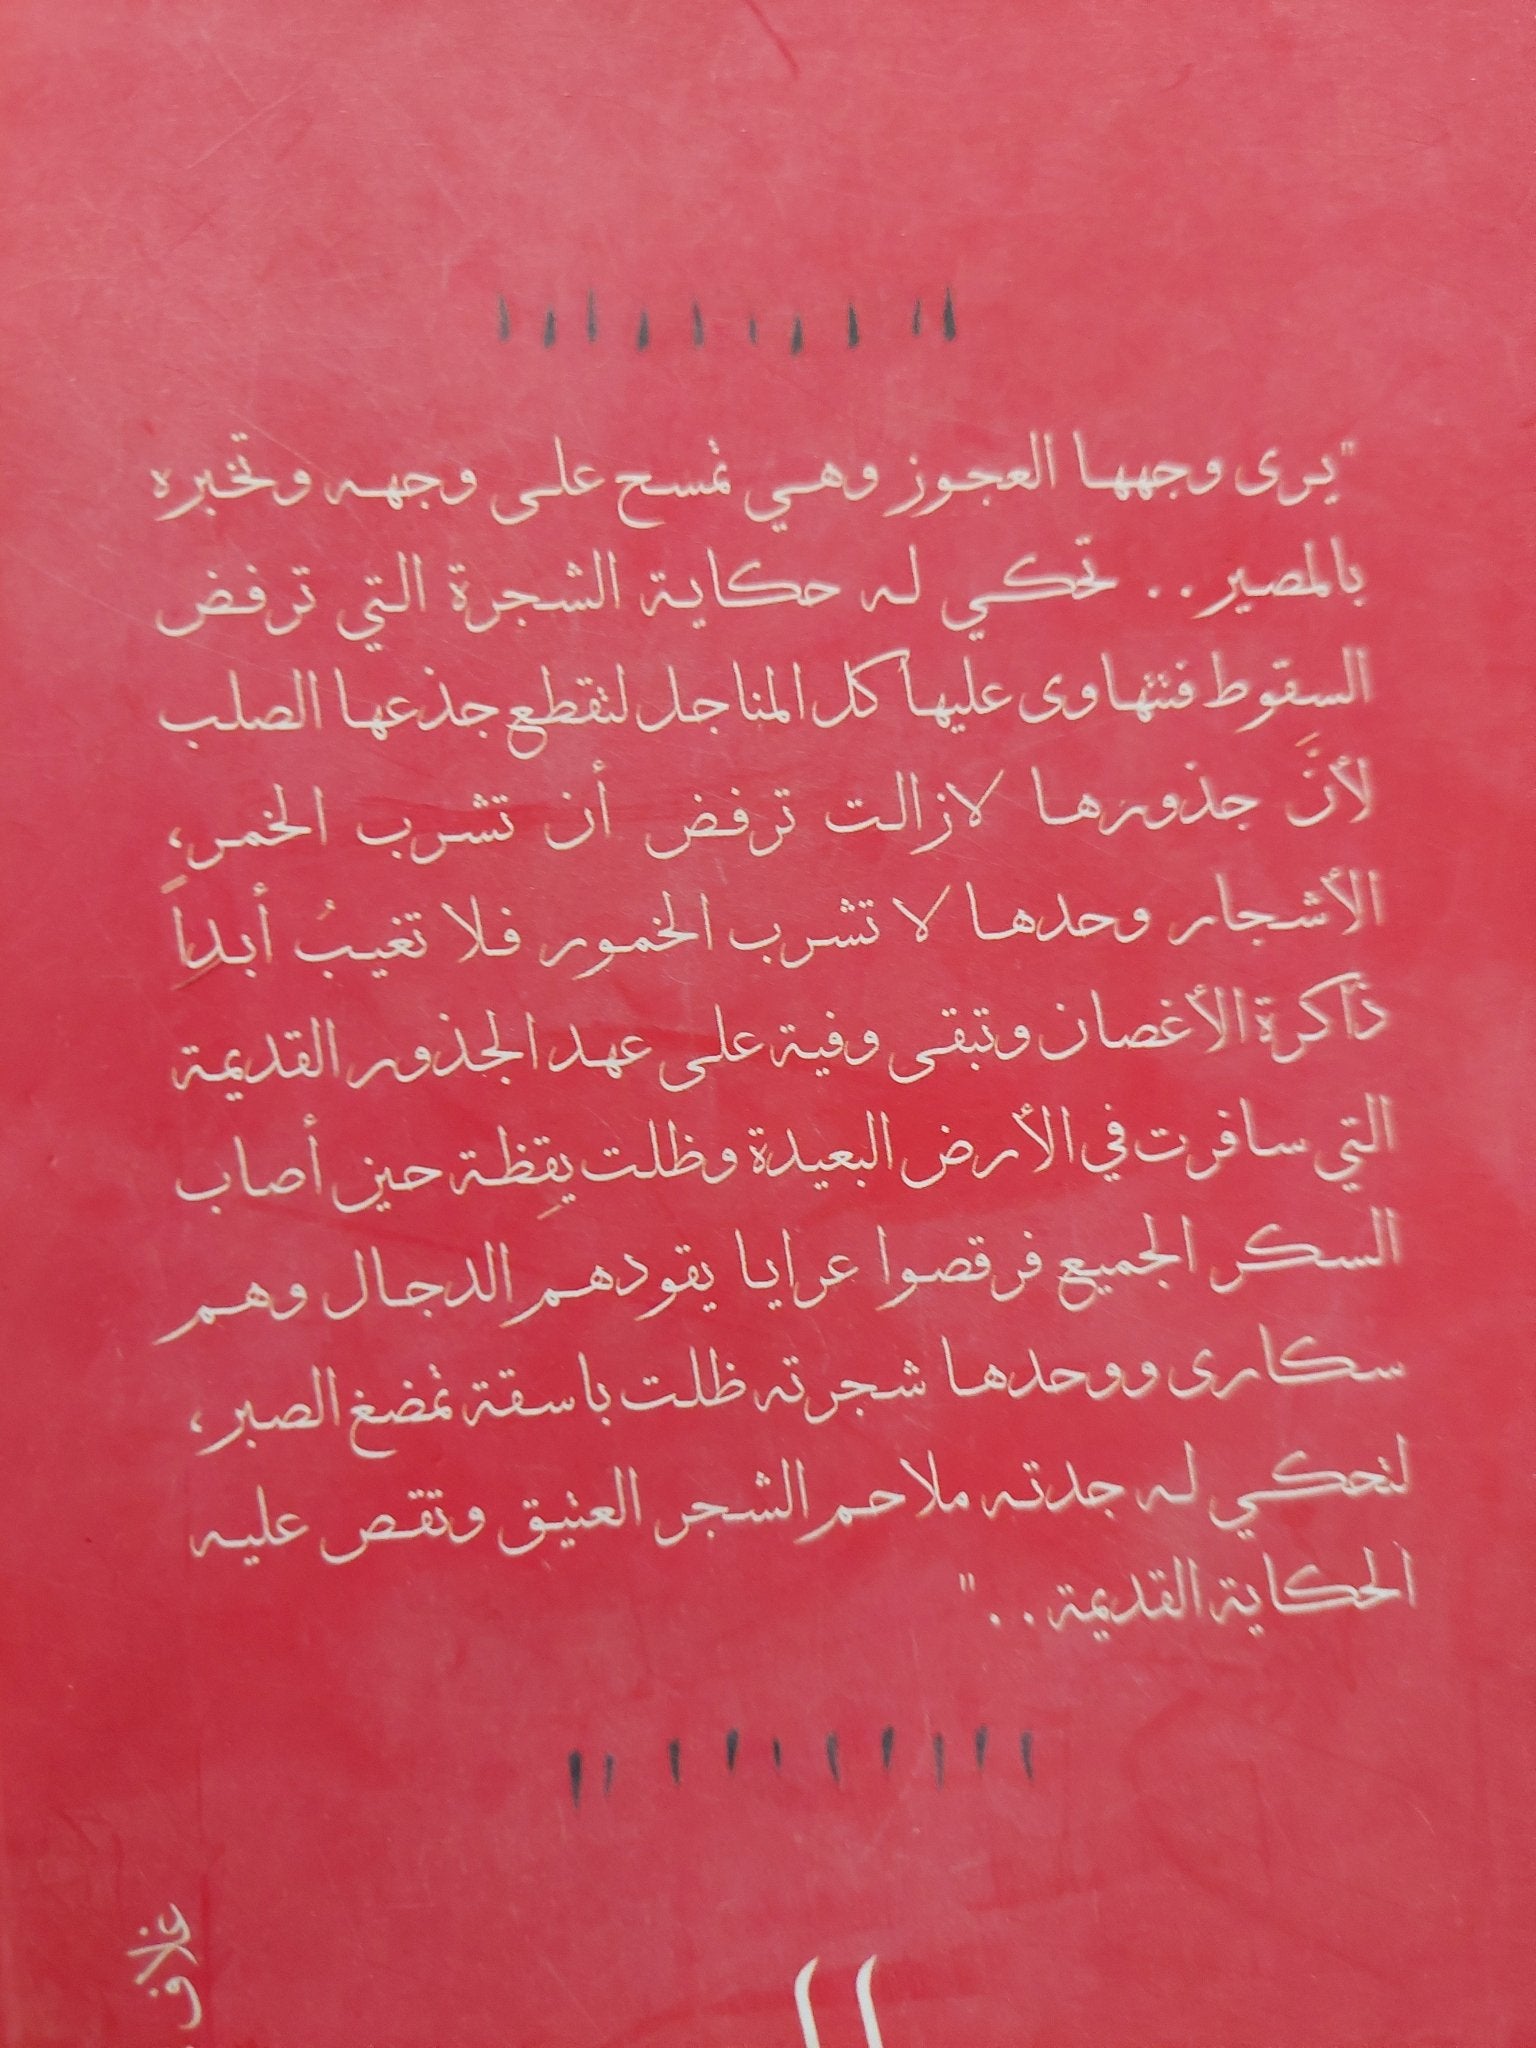 "يرى وجهها العجوز وهي تمسح على وجهه وتخبره
بالمصير.. تحكي له حكاية الشجرة التي ترفض
السقوط فتتهاوى عليها كل المناجل لتقطع جذعها الصلب
لأنَّ جذورها لازالت ترفض أن تشرب الخمر،
الأشجار وحدها لا تشرب الخمور فلا تغيبُ أبداً
ذاكرة الأغصان وتبقى وفية على عهد الجذور القديمة
التي سافرت في الأرض البعيدة وظلت يقِظة حين أصاب
السكر الجميع فرقصوا عرايا يقودهم الدجال وهم
سكارى ووحدها شجرته ظلت باسقة تمضغ الصبر،
لتحكي له جدته ملاحم الشجر العتيق وتقص عليه
الحكاية القديمة.."
غلاف